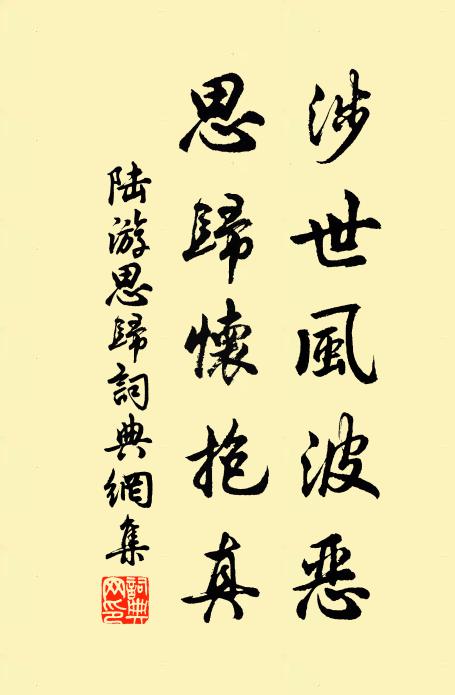 涉世風波恶
思歸懷抱真
陆游思歸詞典網集
詞典网印